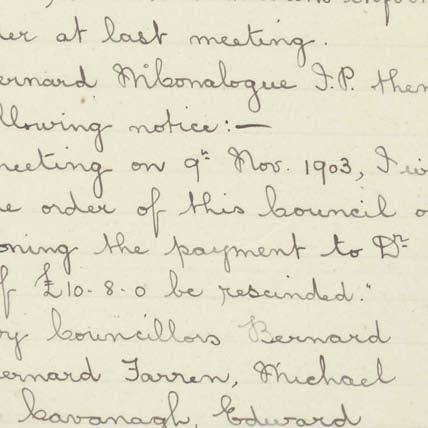 er at last meeting.
ernard McGonalogue J.P. then
llowing notice:—
meeting on 9th Nov. 1903, I wi
e order of this Council o
oning the payment to Dr
f £10.8.0 be rescinded."
by Councillors Bernard
ernard Farren, Michael
Cavanagh, Edward